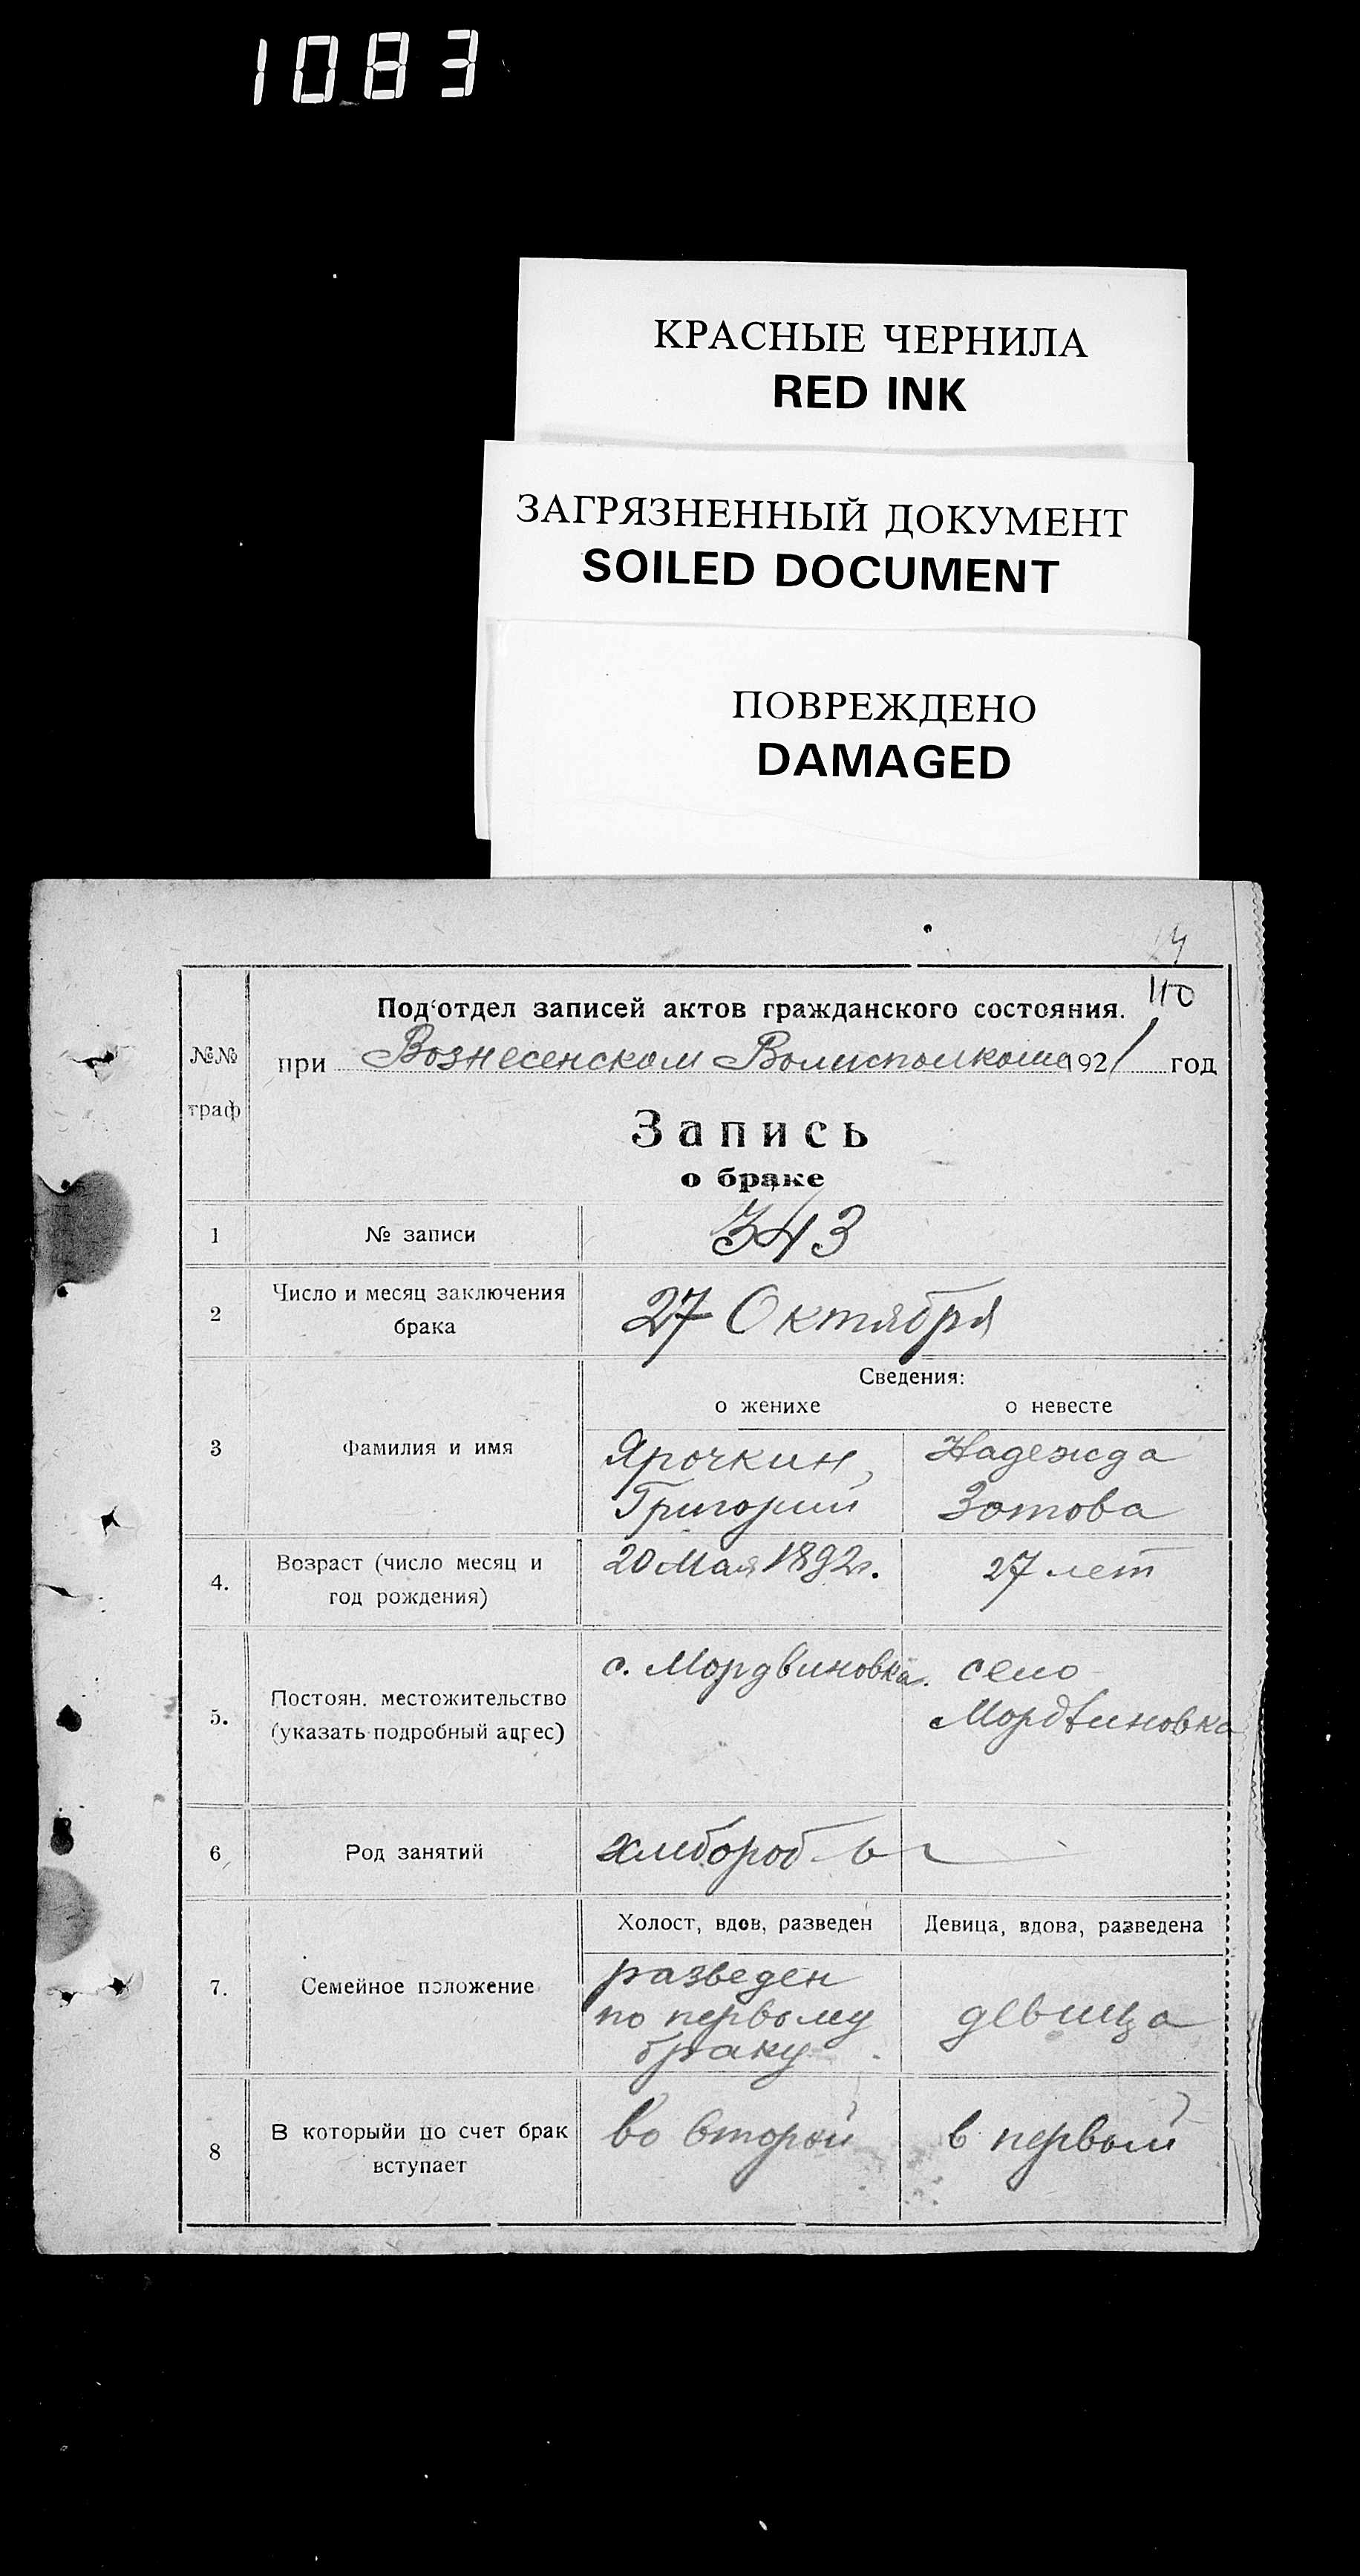 1083
КРАСНЫЕ ЧЕРНИЛА
RED INK
ЗАГРЯЗНЕННЫЙ ДОКУМЕНТ
SOILED DOCUMENT
ПОВРЕЖДЕНО
DAMAGED
110
Под‘отдел записей актов гражданского состояния.
№№ граф
при Вознесенском Волисполкоме 1921 год
Запись
о браке
1 № записи 343
2 Число и месяц заключения
брака
27 Октября
Сведения:
о женихе о невесте
3 Фамилия и имя
Ярочкин, Надежда
Григорий Зотова
4. Возраст (число месяц и
год рождения)
20 Мая 1892 г. 27 лет
5. Постоян. местожительство
(указать подробный адрес)
с. Мордвиновка. село
Мордвиновка
6 Род занятий хлебороб
Холост, вдов, разведен Девица, вдова, разведена
7. Семейное положение
разведен
по первому девица
браку
8 В которыйи по счет брак
вступает
во второй в первый